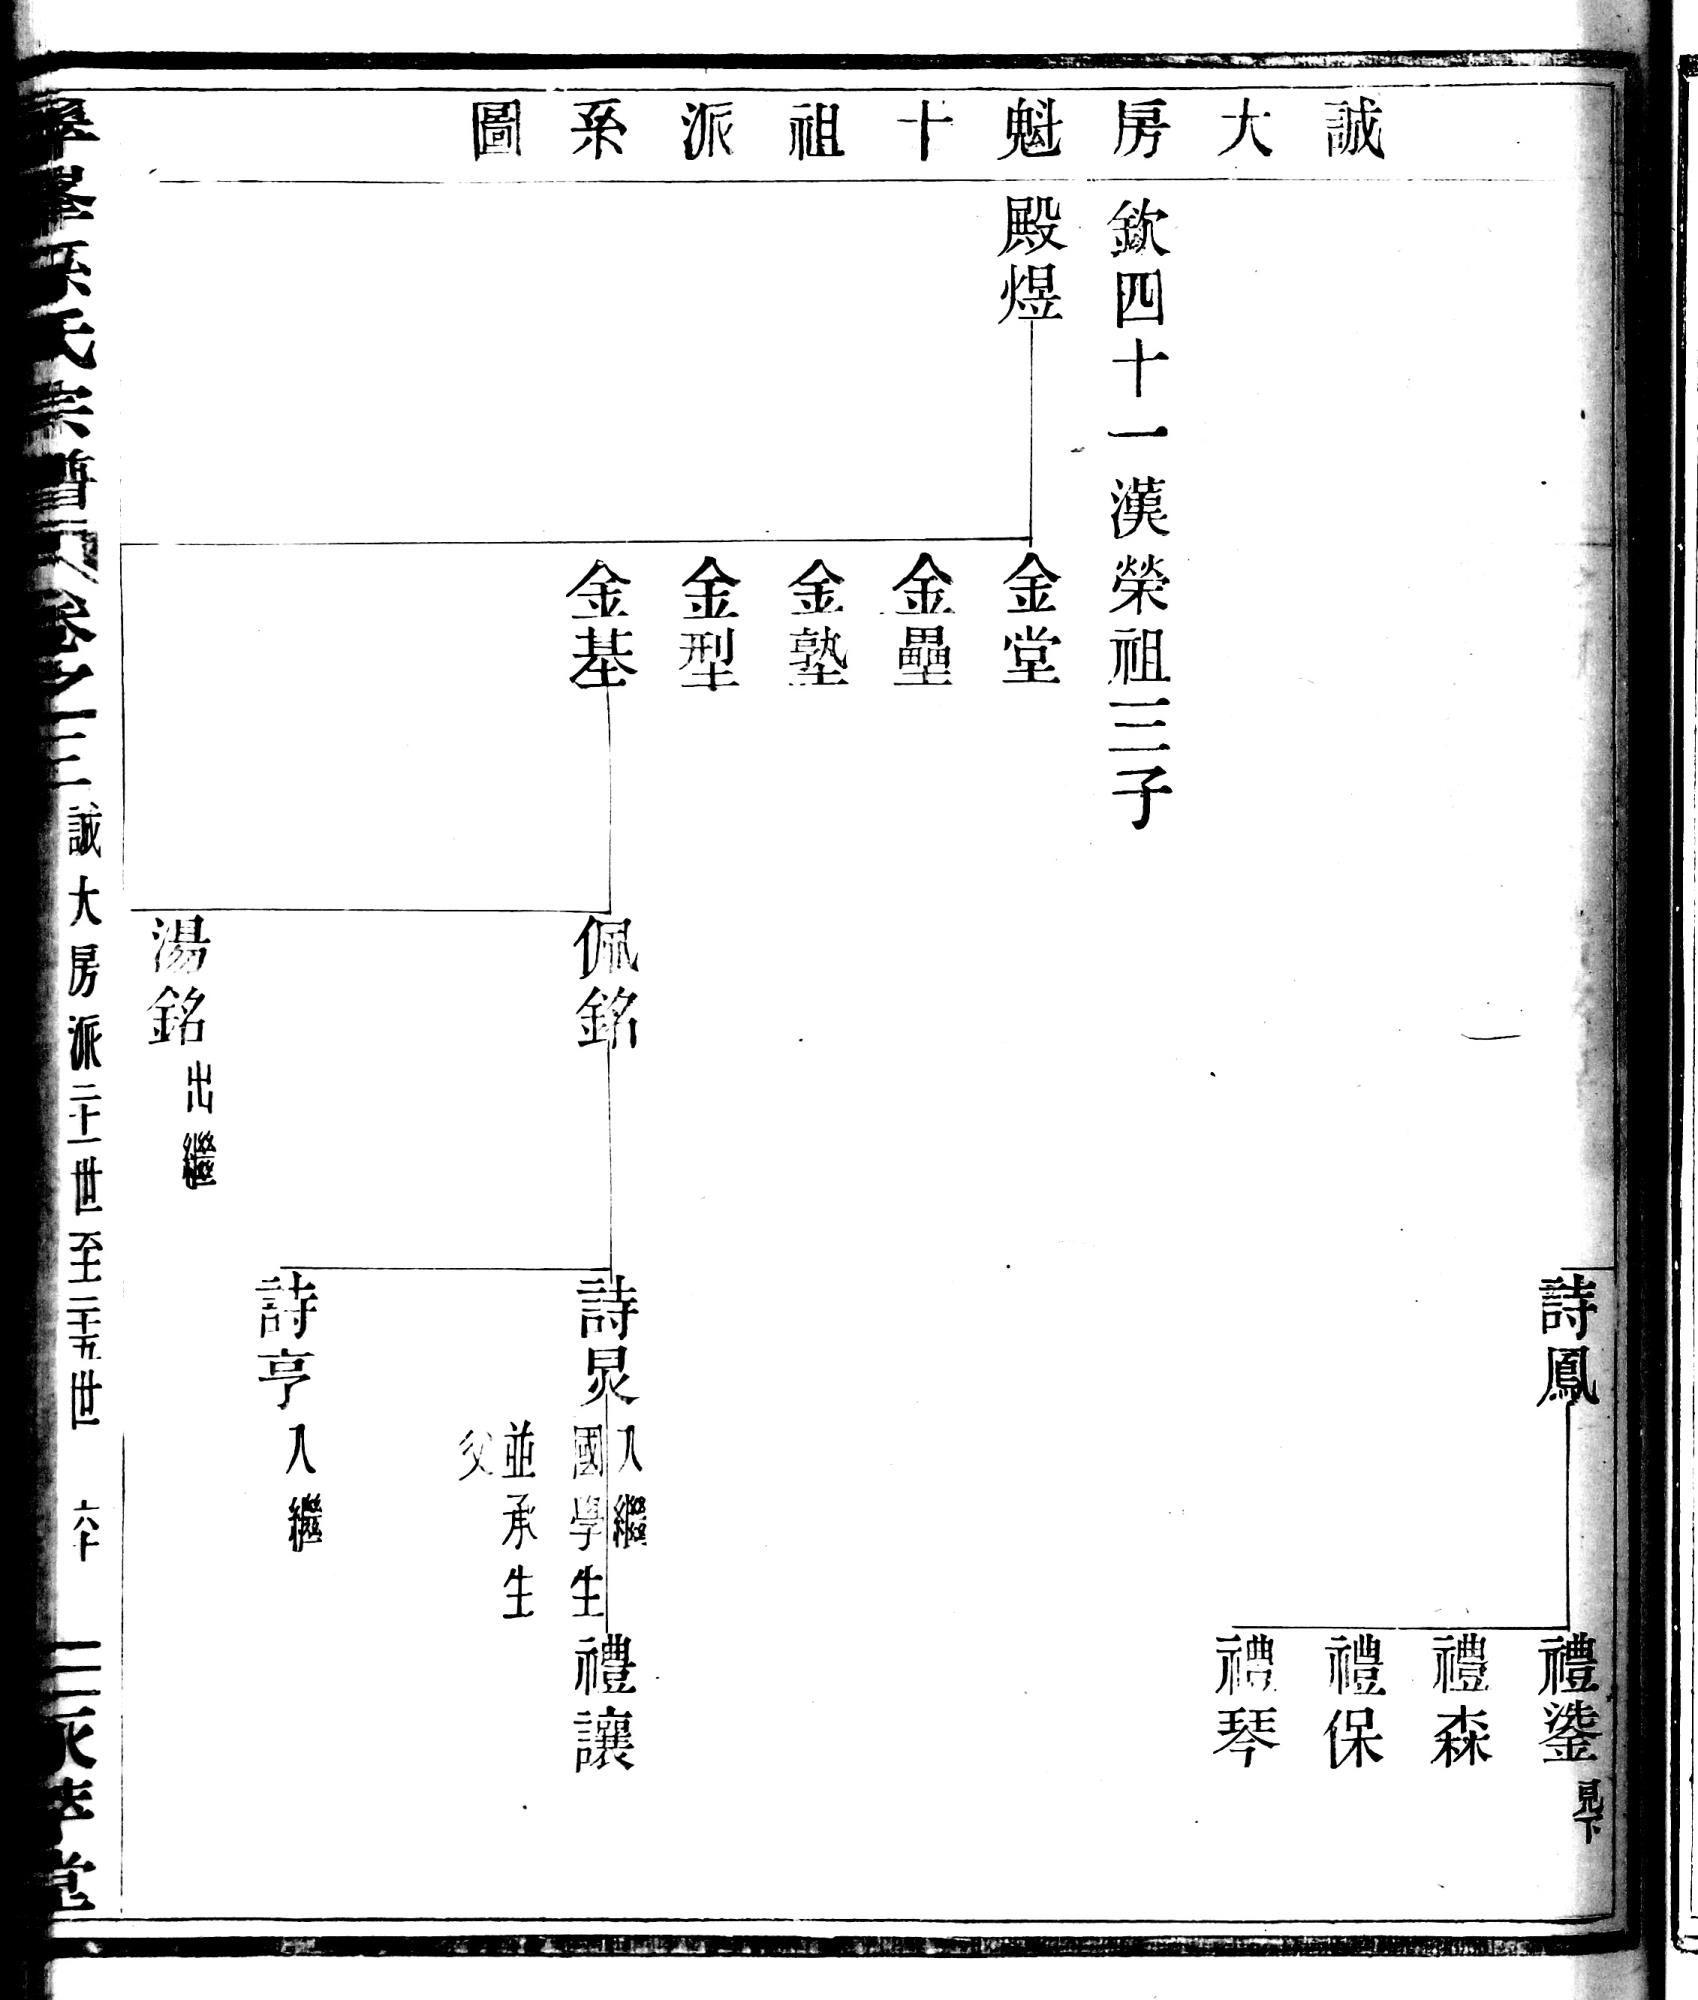 誠大房魁十祖派系圖
欽四十一漢榮祖三子
殿煜
金堂
金壘
金塾
金型
金基
佩銘
湯銘出繼
詩鳳
詩炅入繼
國學生
並承生
父
詩亨入繼
禮鍌見下
禮森
禮保
禮琴
禮讓
孫氏宗譜
卷之三
誠大房派二十一世至二十五世
六十
堂